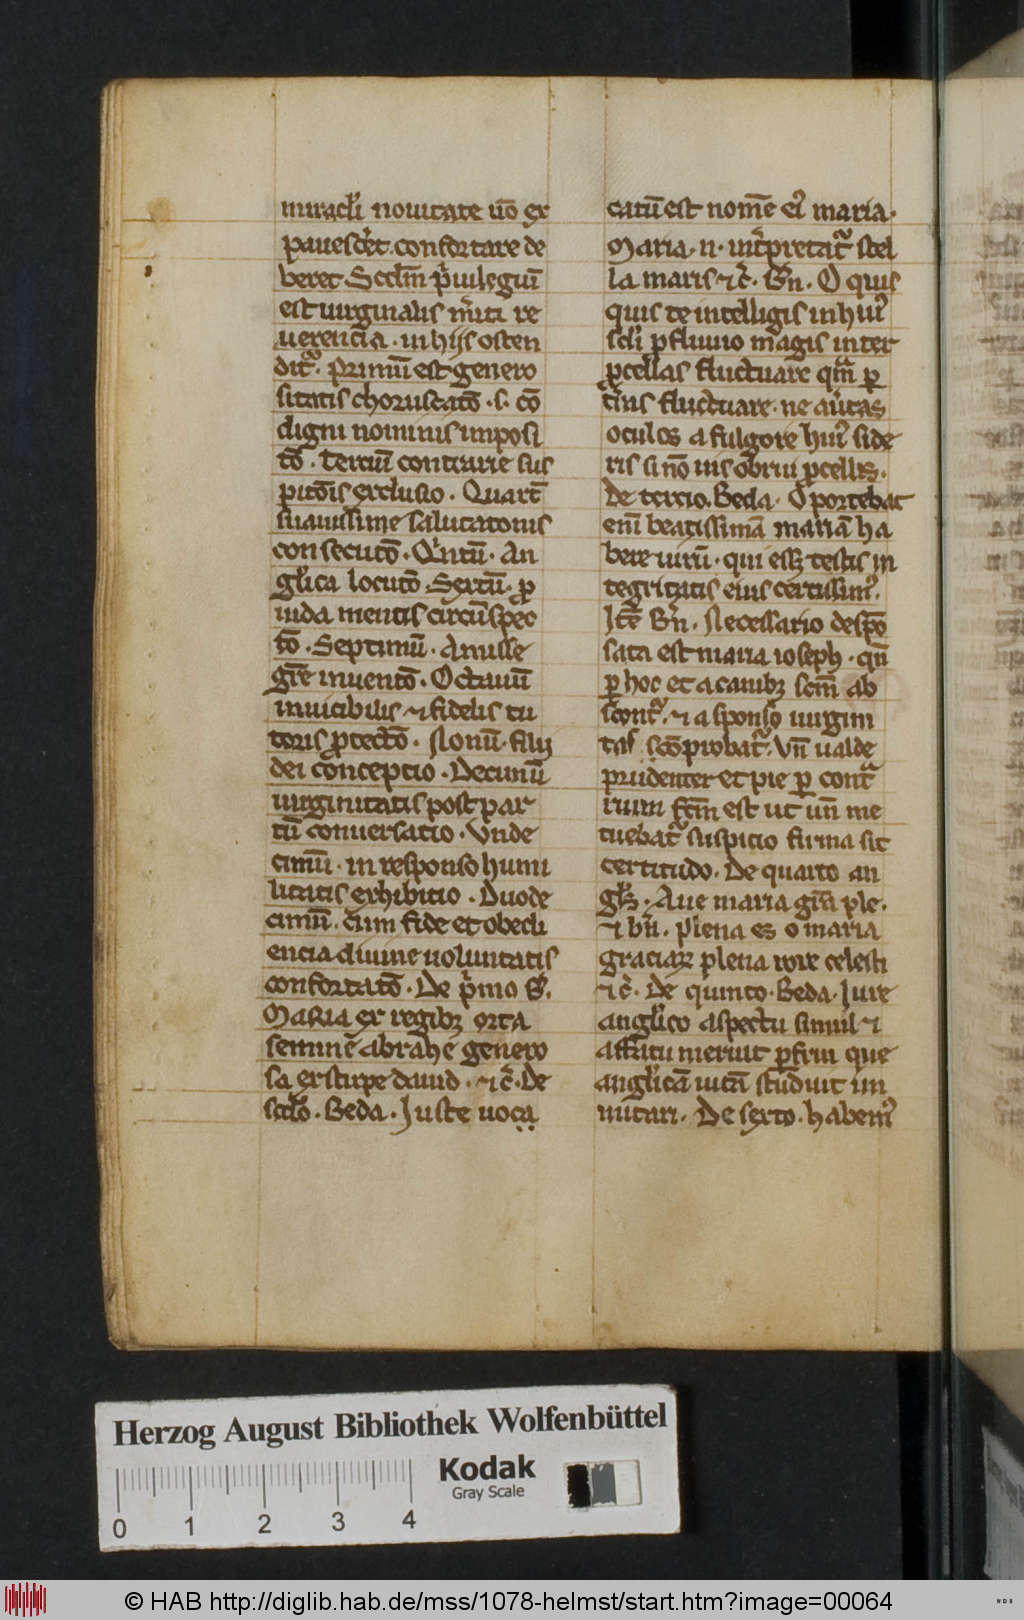 miraculi nouitate uo ex
pauescēt. confortare de
beret Scdm p̄uilegiū
est uirginalis m̄iti re
uerencia . in hijs osten
dit᷑. Primū est genero
sitatis choruscatō . s. cō
digni nominis imposi
tō . Terciū contrarie sus
pitōis exclusio . Quart̄
suauissime salutatōnis
consecutō . Qͥntū . An
glica locutō . Sextū . ꝓ
uida mentis circūspec
tō . Septimū . Amisse
gr̄e inuentō . Octauū
inuicibilis ⁊ fidelis tu
toris ꝓtectō . Nonū . filij
dei conceptio . Decimū
uirginitatis post par
tū conuersatio . Vnde
cimū . in responso humi
litatis exhibitio . Duode
cimū . cum fide et obedi
encia diuine uoluntatis
confortatō . De p̄mo B̄.
Maria ex regibꝫ orta
semine abrahe genero
sa ex stirpe dauid . ⁊c̄ . De
scdo . Beda . Iuste uoca
catū est nomē eiꝰ maria .
Maria . n . int̄pretat᷑ stel
la maris ⁊c̄ . Bn̄ . O quis
quis te intelligis in huiꝰ
scli ꝓfluuio magis inter
ꝓcellas fluctuare qm̄ ꝑ
t̄ris fluctuare . ne au̇tas
oculos a fulgore huiꝰ side
ris si nō uis obrui ꝓcellis .
De tercio . Beda . Oportebat
enī beatissimā mariā ha
bere uirū . qui ess3 testis in
tegritatis eius certissimꝰ.
Itē Bn̄ . Necessario despō
sata est maria ioseph . qn̄
ꝑ hoc et a canibꝫ scm̄ ab
scont᷑ . ⁊ a sponso uirgini
tas scōprobat᷑ . Vn̄ ualde
prudenter et pie ꝑ cont᷑
rium fcm̄ est ut un̄ me
tuebat᷑ suspicio firma sit
certitudo . De quarto an
gls . Aue maria grā ple .
⁊ bn̄ . Plena es o maria
graciaꝝ plena rore celesti
⁊c̄ . De quinto . Beda . Iure
anglico aspectu simul ⁊
affatu meruit ꝑfrui que
anglicā uitā studuit im
mitari . De sexto . habemꝰ
Herzog August Bibliothek Wolfenbüttel
Kodak
Gray Scale
0 1 2 3 4
© HAB http://diglib.hab.de/mss/1078-helmst/start.htm?image=00064